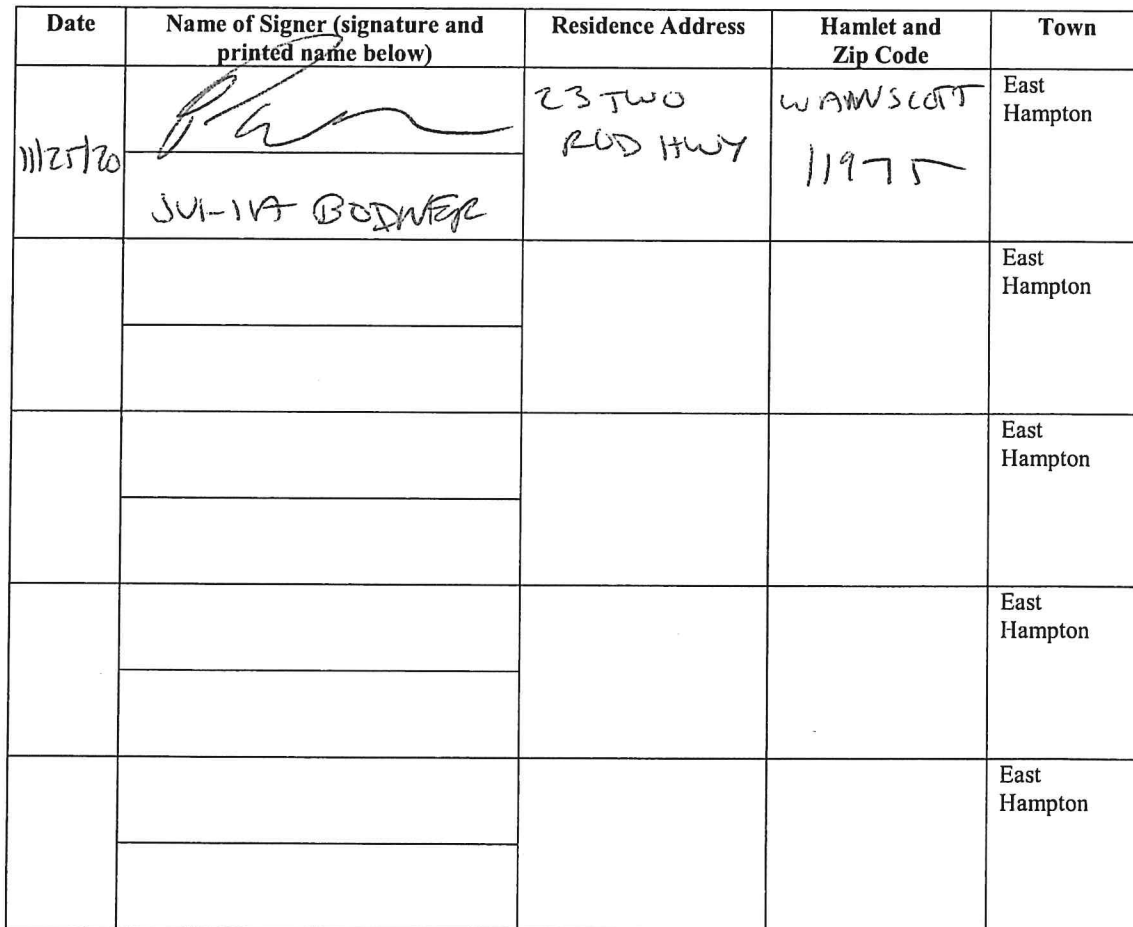 Date
Name of Signer (signature and
printed name below)
Residence Address
Hamlet and
Zip Code
Town
11/25/20
JULIA BODNER
23 TWO
ROD HWY
WAINSCOTT
11975
East
Hampton
East
Hampton
East
Hampton
East
Hampton
East
Hampton